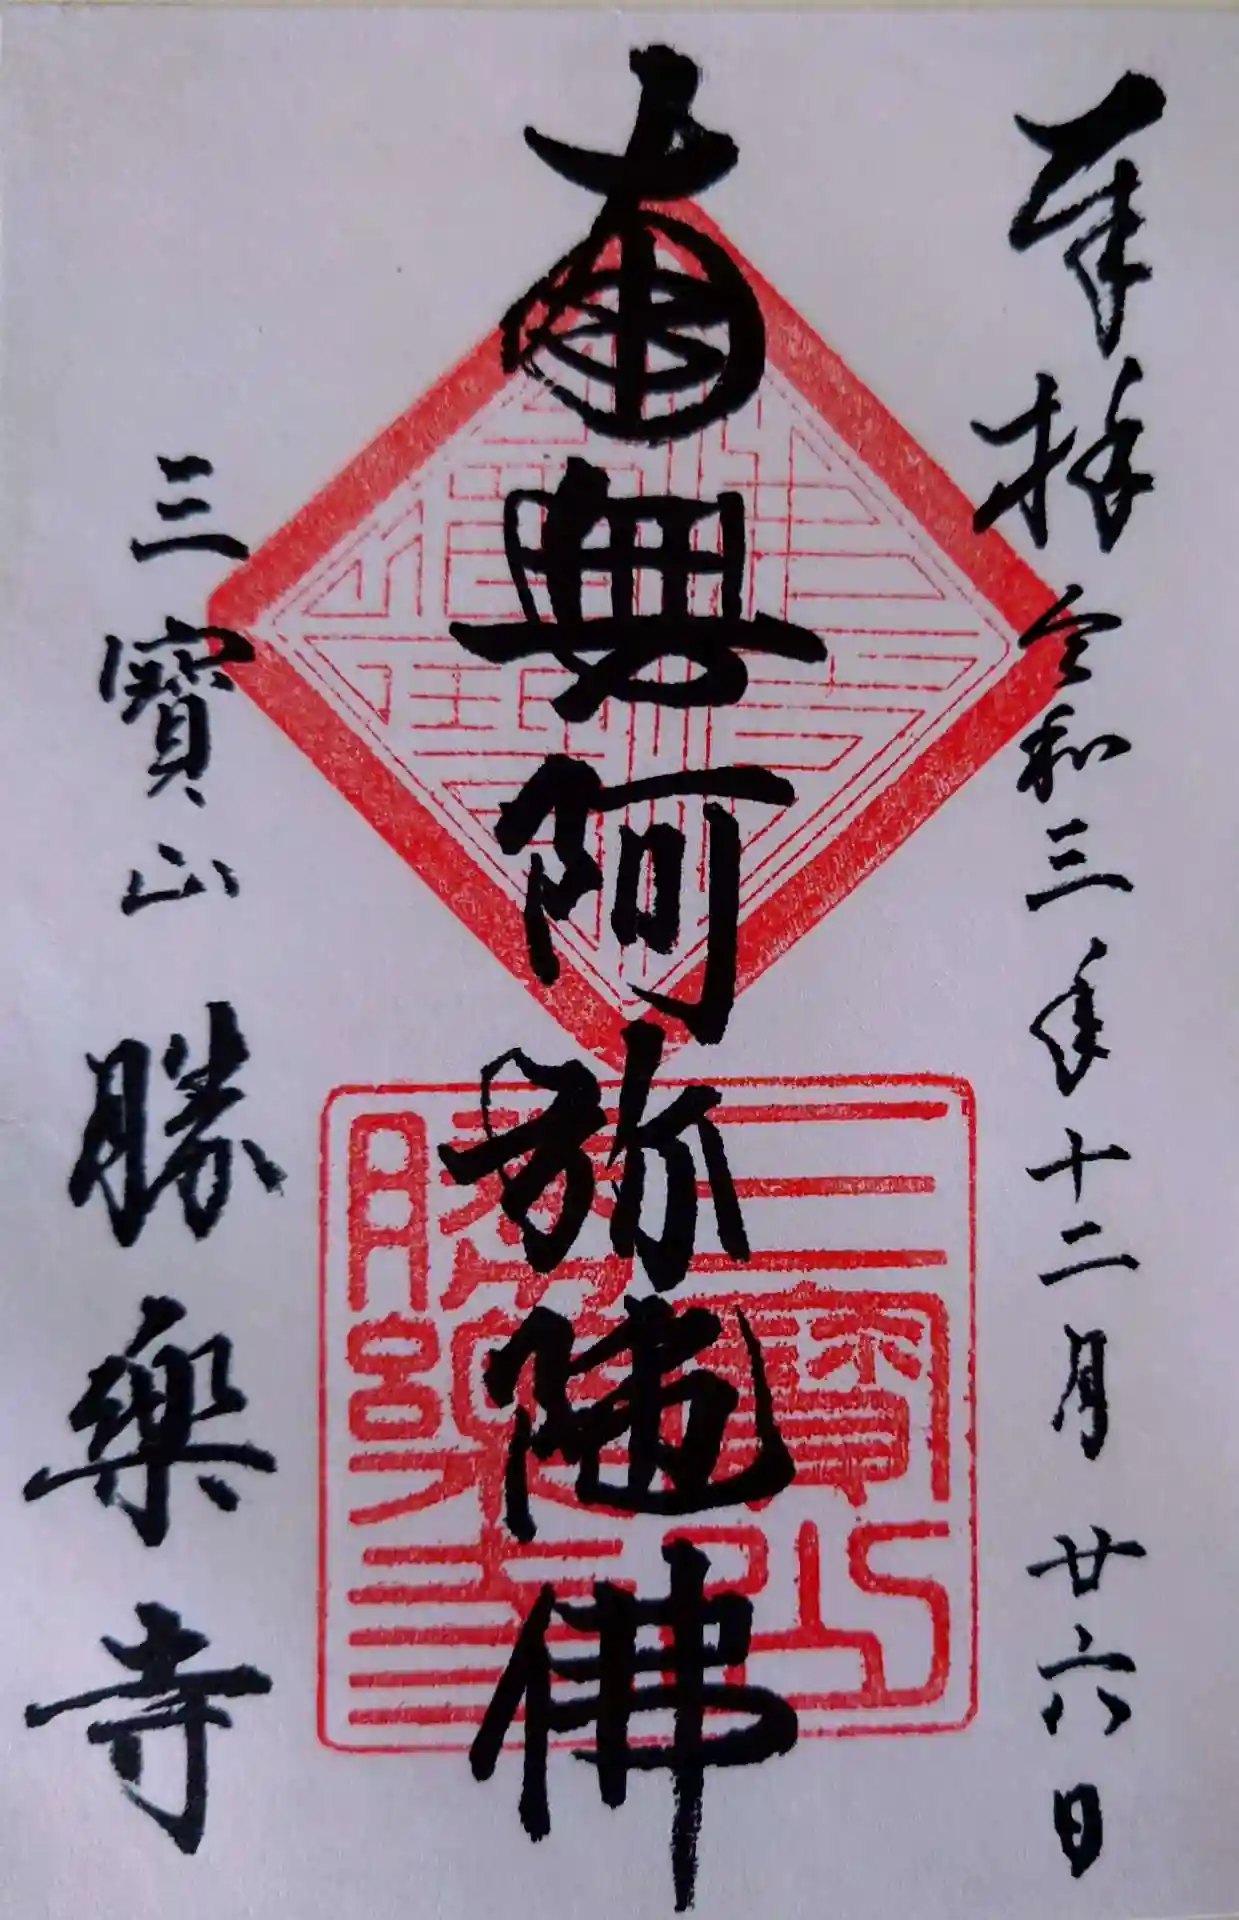 奉拝 令和三年十二月廿六日
南無阿弥陀佛
三寳山 勝樂寺
三寶山
勝樂寺